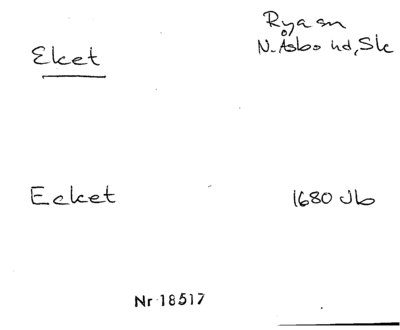 Ekset
Rya sn
N. Åsbo hd, Sk
Ecket
1680 Jb
Nr 18517